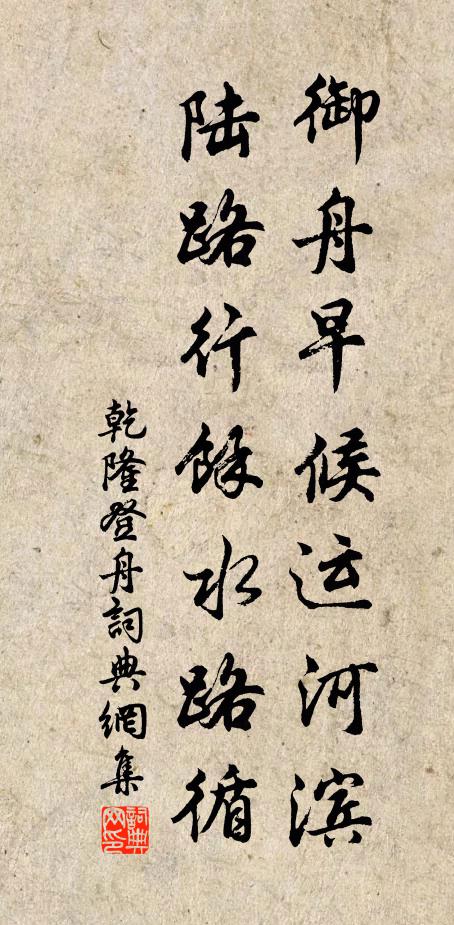 御舟早候运河滨
陆路行餘水路循
乾隆登舟詞典網集
詞典网印